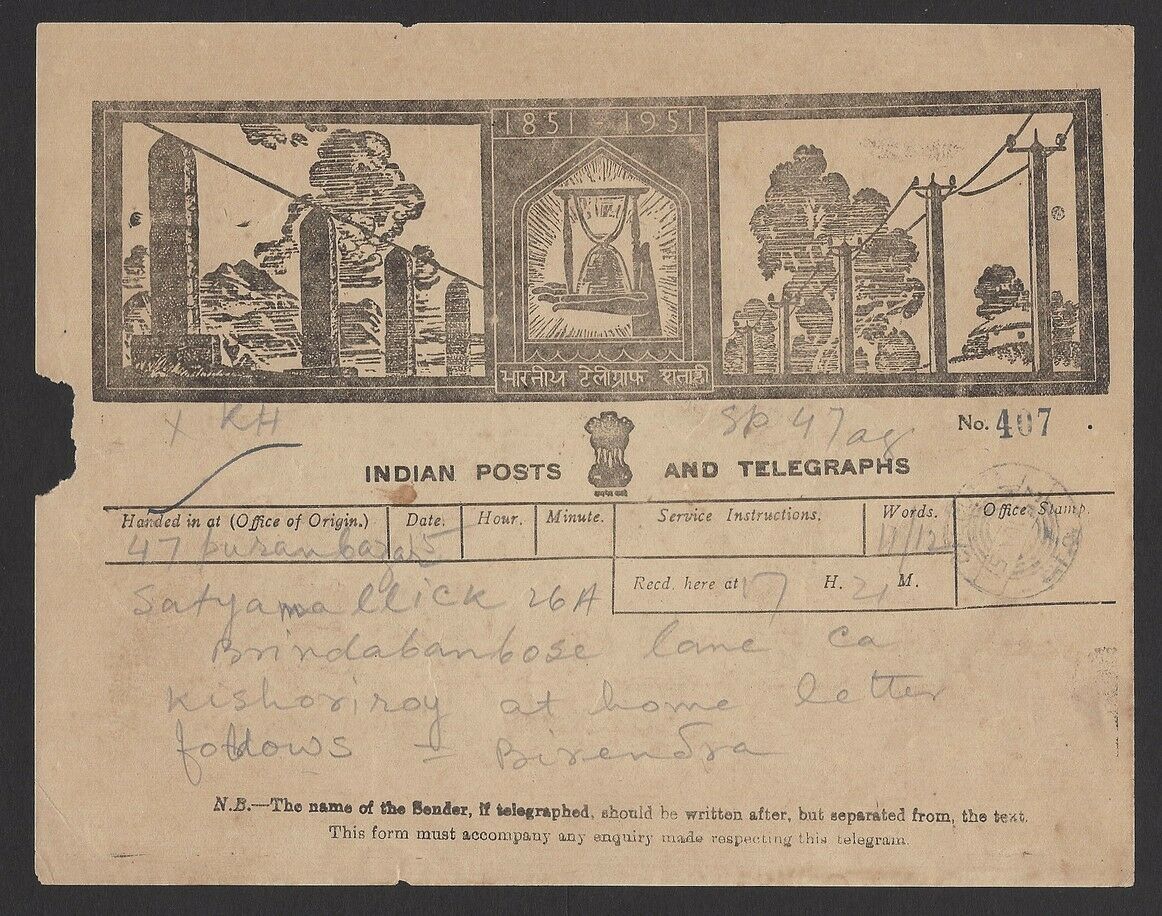 1851 1951
भारतीय टेलीग्राफ शताब्दी
X KH
SP 47 ag
No. 407
INDIAN POSTS AND TELEGRAPHS
Handed in at (Office of Origin.) Date. Hour. Minute. Service Instructions. Words. Office Stamp.
47 puranbazar 5 11/12
Recd. here at 17 H. 21 M.
Satyamallick 26A
Brindabanbose lane Ca
Kishoriroy at home letter
follows — Birendra
N.B.—The name of the Sender, if telegraphed, should be written after, but separated from, the text.
This form must accompany any enquiry made respecting this telegram.